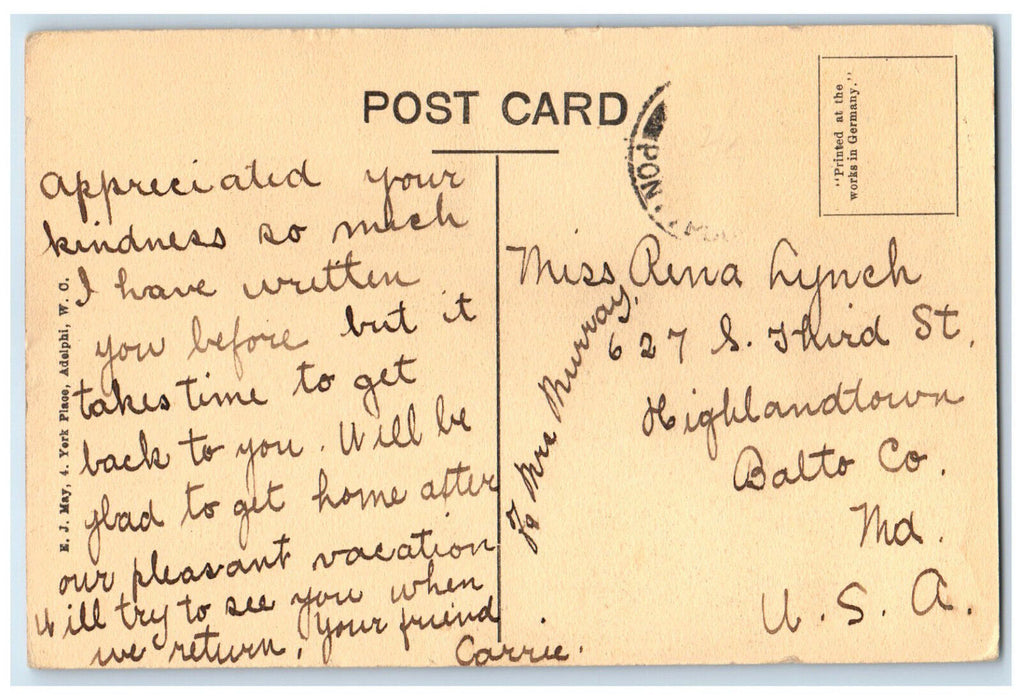 POST CARD
"Printed at the
works in Germany."
E. J. May, 4. York Place, Adelphi, W. C.
appreciated your
kindness so much
I have written
you before but it
takes time to get
back to you. Will be
glad to get home after
our pleasant vacation
Will try to see you when
we return. Your friend
Carrie.
Miss Rena Lynch
℅ Mrs Murray,
627 S. Third St.
Highlandtown
Balto Co.
Md.
U. S. A.